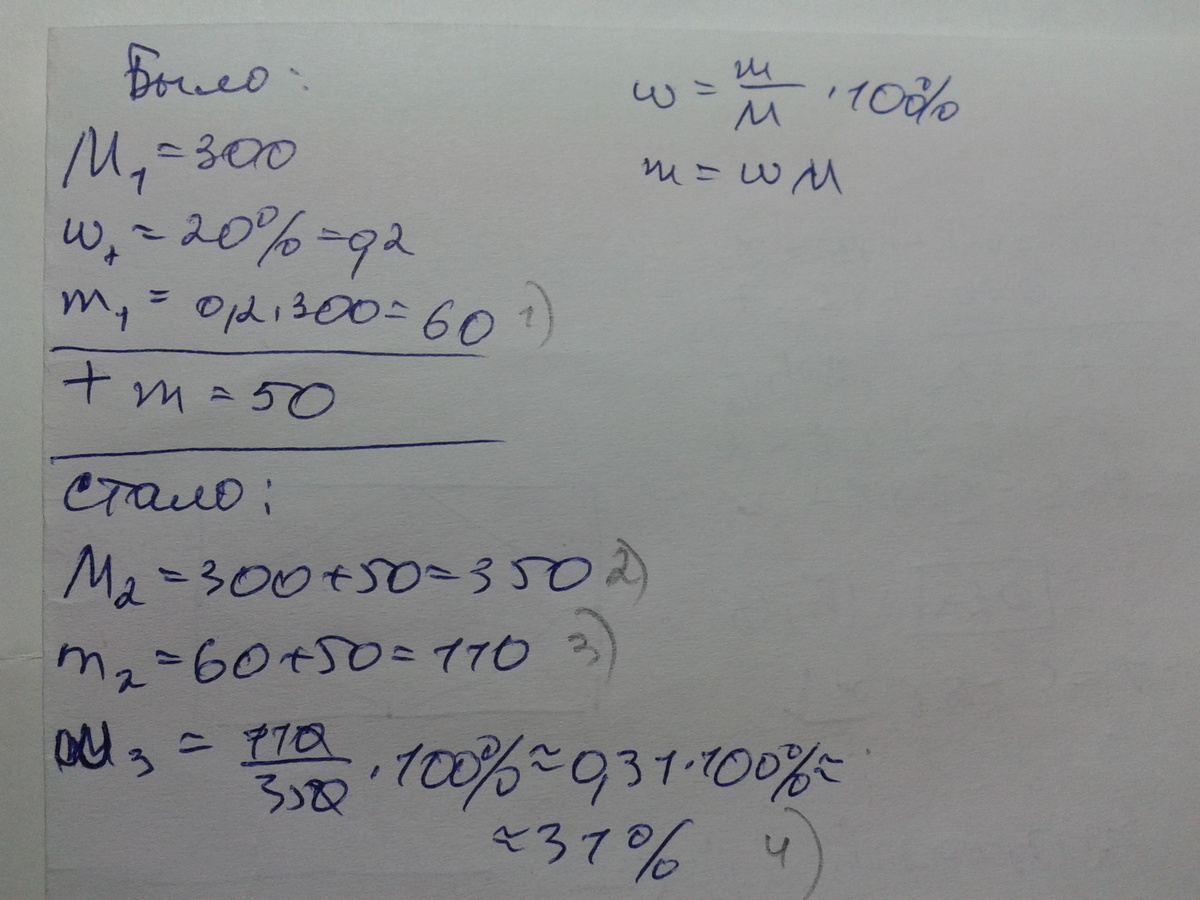 Было:
M₁ = 300
w₁ = 20% = 0,2
m₁ = 0,2 · 300 = 60 1)
+ m = 50
Стало:
M₂ = 300 + 50 = 350 2)
m₂ = 60 + 50 = 110 3)
w₃ = 110/350 · 100% ≈ 0,31 · 100% ≈
≈ 31% 4)
w = m/M · 100%
m = wM